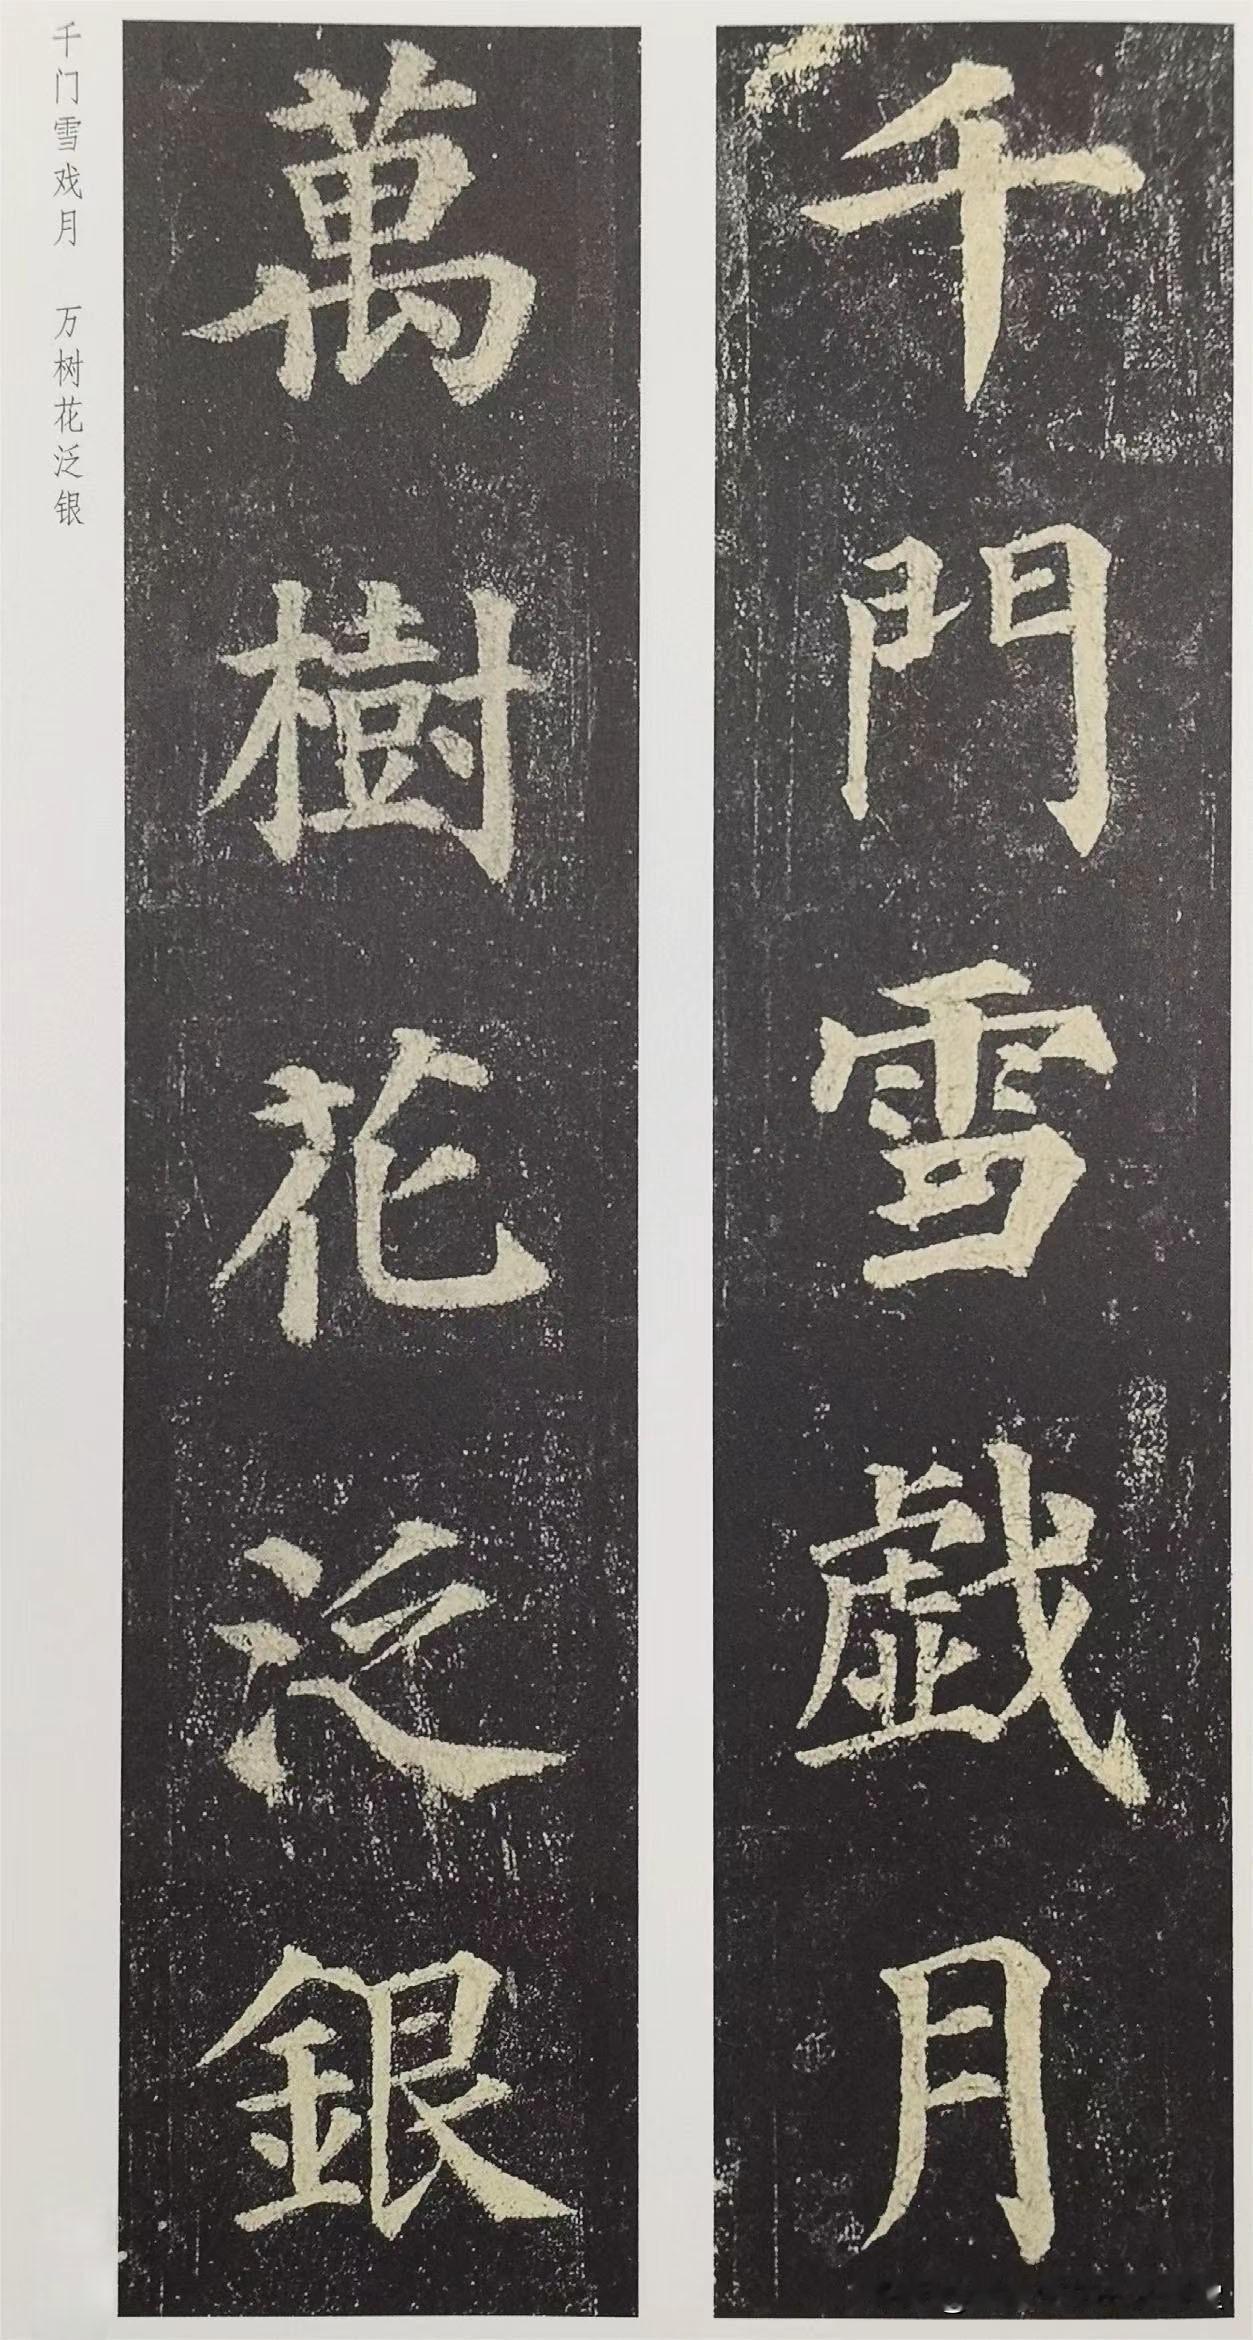 千門雪戯月
萬樹花泛銀
千门雪戏月 万树花泛银